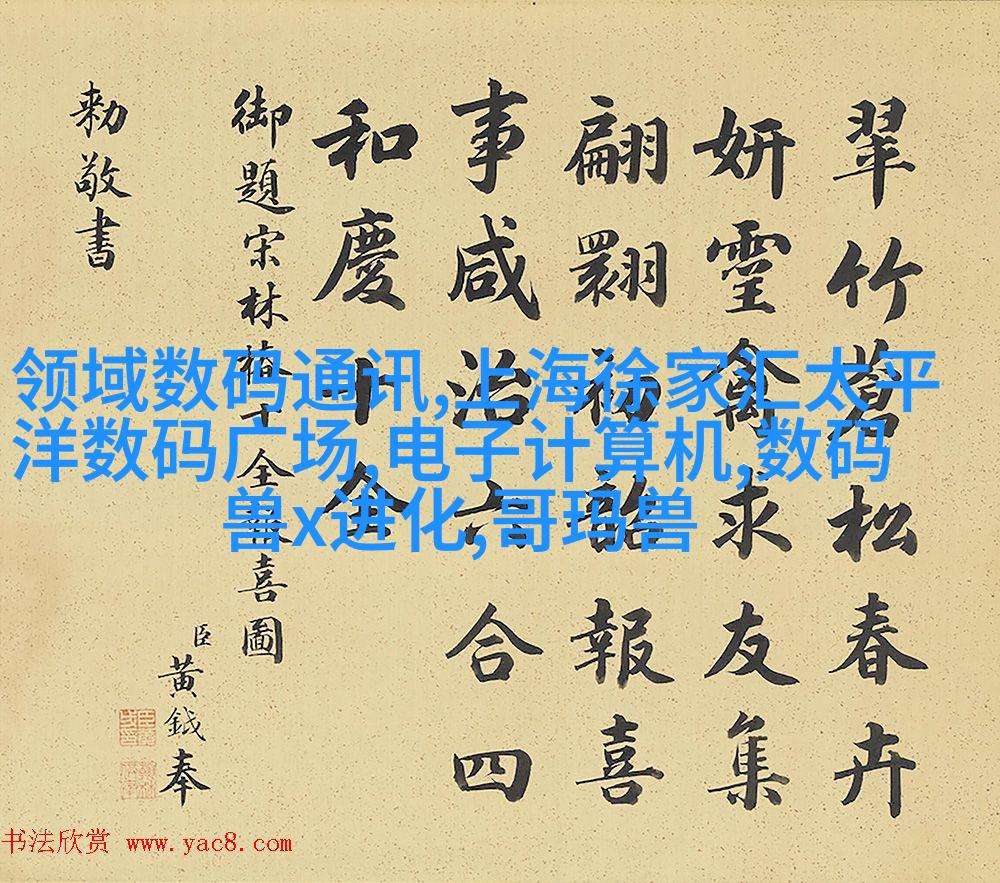 翠竹蒼松春卉
妍靈禽求友集
翩翾初韶報喜
事咸洽六合四
和慶十全
御題宋林椿十全報喜圖
臣黃鉞奉
勑敬書
领域数码通讯,上海徐家汇太平
洋数码广场,电子计算机,数码
兽x进化,哥玛兽
书法欣赏 www.yac8.com